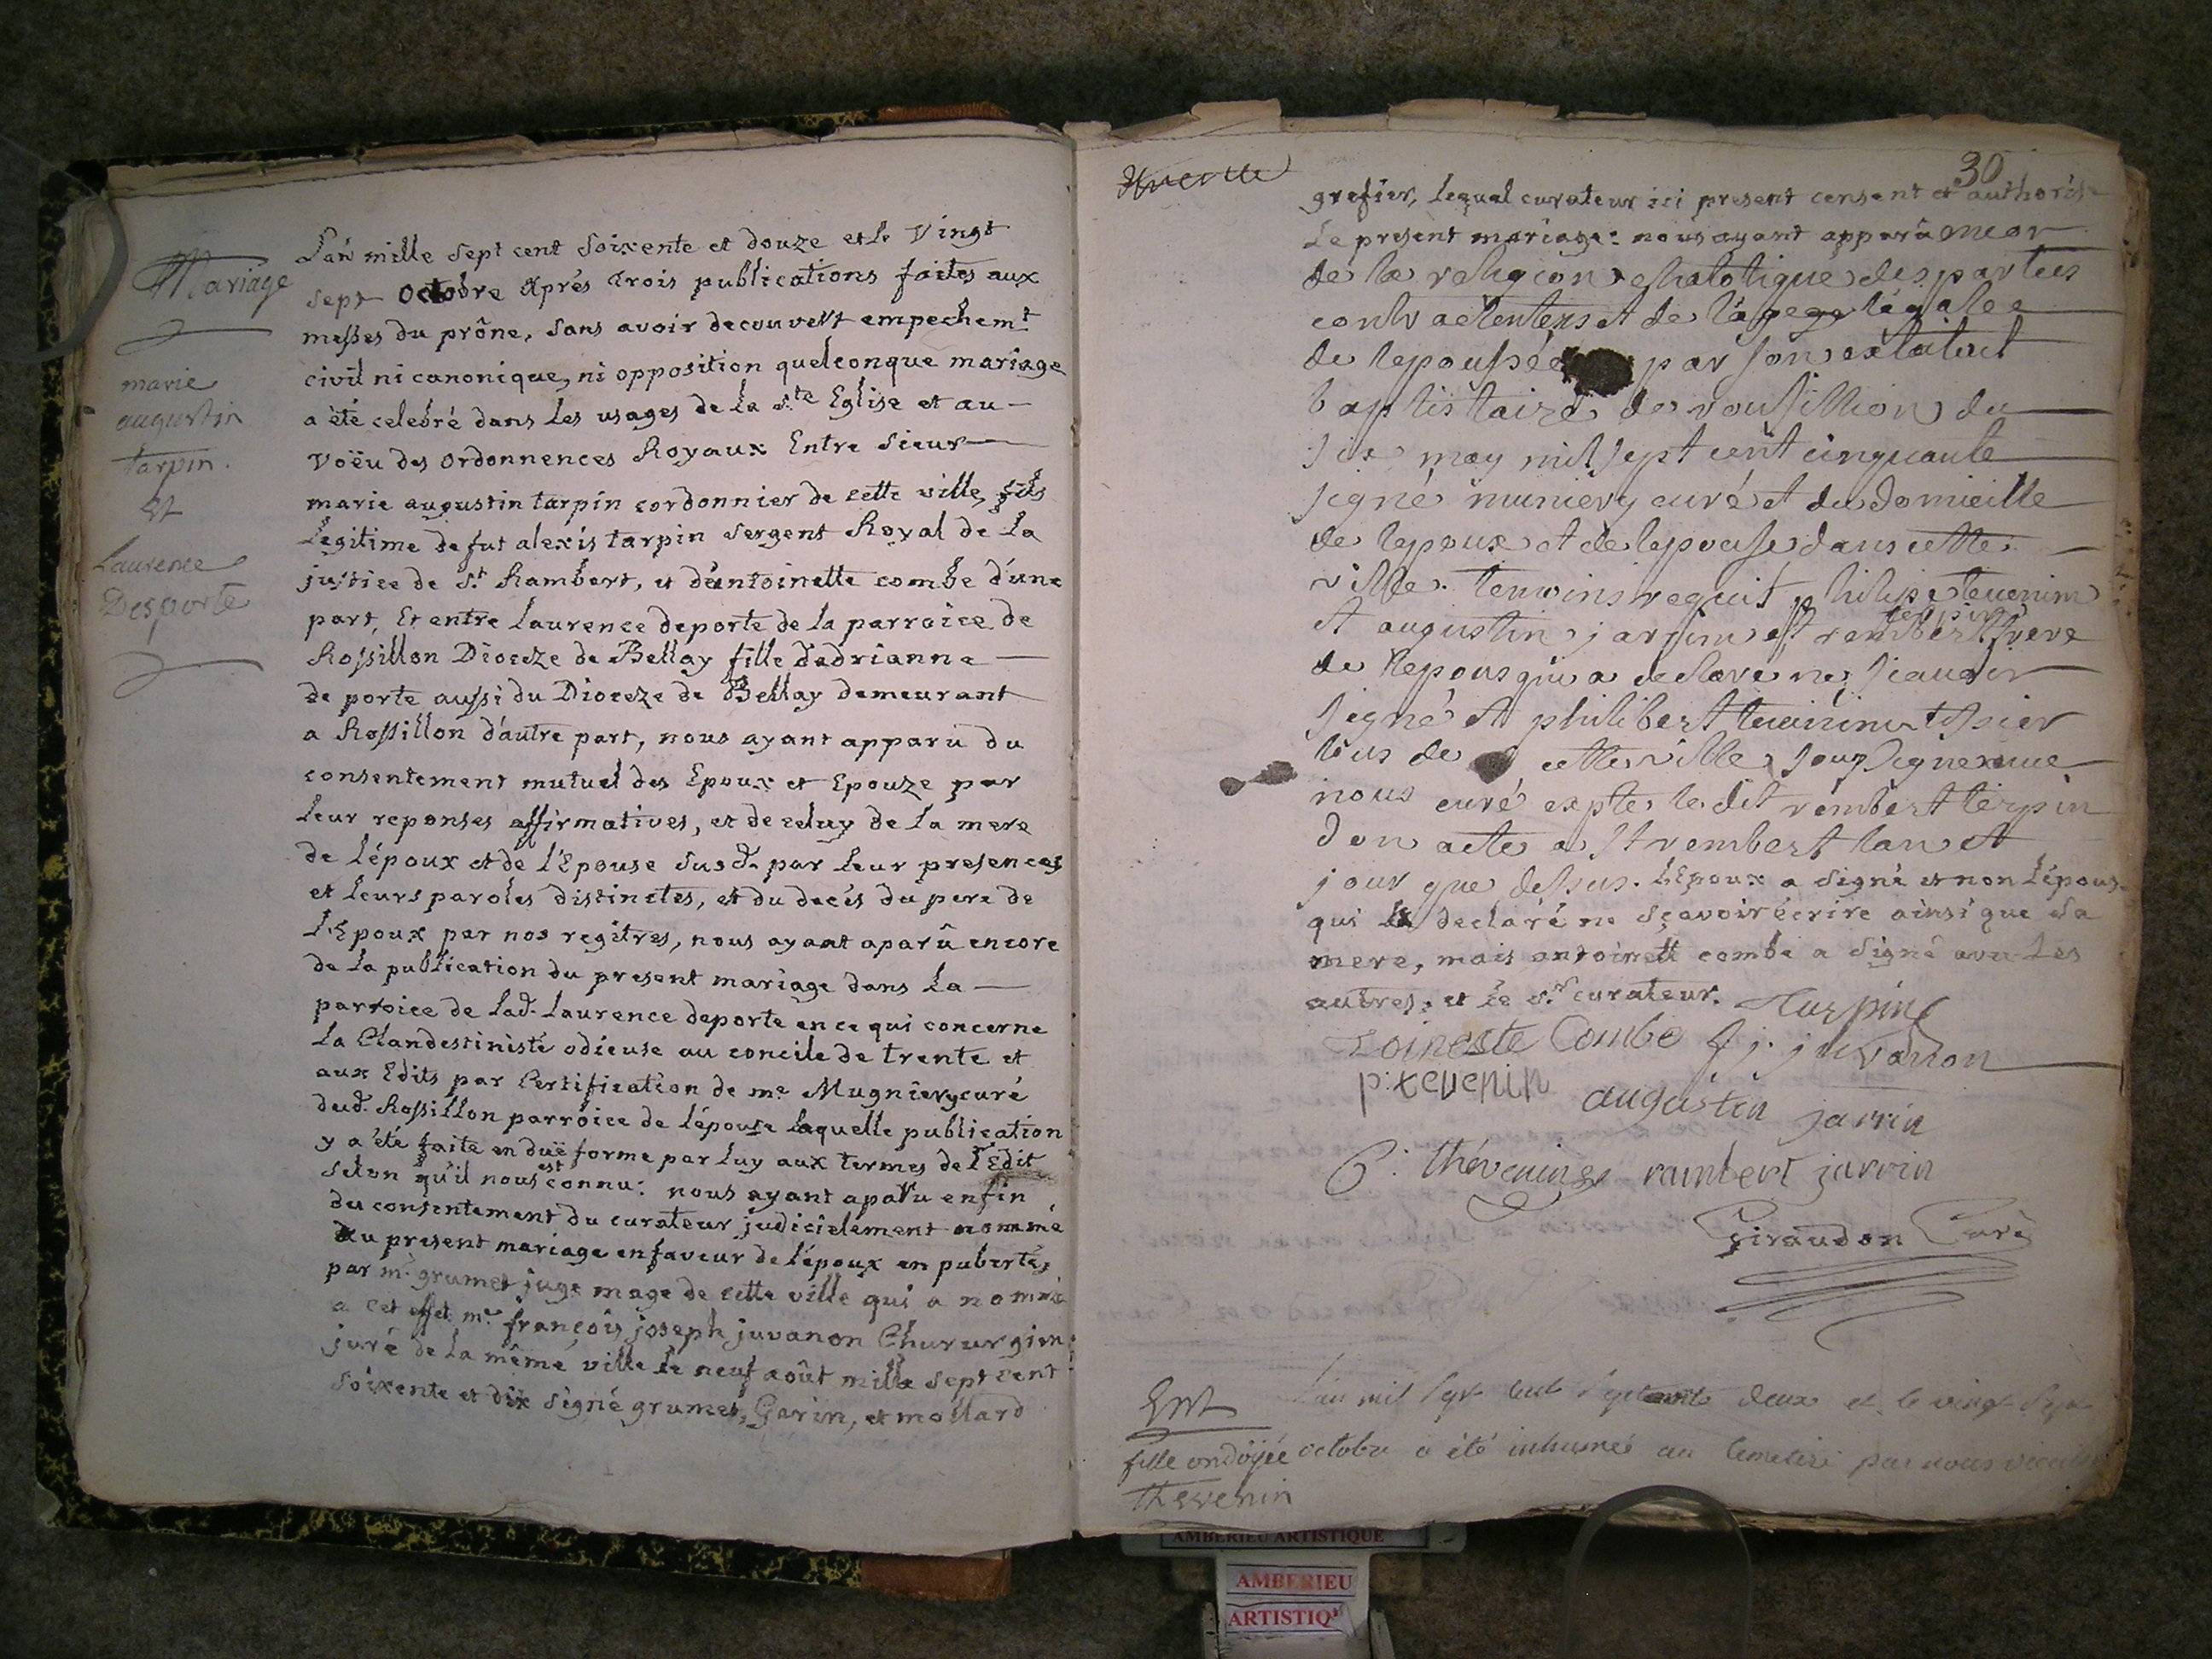 Mariage
marie
augustin
tarpin.
Et
Laurence
Desporte
L'an mille sept cent soixente et douze et le vingt
sept octobre après trois publications faites aux
messes du prône, sans avoir decouvert empechemt
civil ni canonique, ni opposition quelconque mariage
a été celebré dans les usages de la ste Eglise et au
voëu des ordonnences Royaux Entre sieur
marie augustin tarpin cordonnier de cette ville, fils
legitime de fut alexis tarpin sergent Royal de la
justice de st Rambert, et d'antoinette combe d'une
part, Et entre laurence deporte de la parroice de
Rossillon Dioceze de Bellay fille d'adrianne
de porte aussi du Dioceze de Bellay demeurant
a Rossillon d'autre part, nous ayant apparu du
consentement mutuel des Epoux et Epouze par
leur reponses affirmatives, et de celuy de la mere
de l'époux et de l'Epouse susd. par leur presences
et leurs paroles distinctes, et du decés du pere de
l'Epoux par nos regitres, nous ayant aparû encore
de la publication du present mariage dans la
parroice de lad. laurence deporte en ce qui concerne
la Clandestinisté odieuse au concile de trente et
aux Edits par Certification de me Mugniery curé
dud. Rossillon parroice de l'épouse laquelle publication
y a été faite en duë forme par luy aux termes de l'Edit
selon qu'il nous est connu: nous ayant aparu enfin
du consentement du curateur judicielement nommé
au present mariage en faveur de l'époux en puberté,
par mr. grumet juge mage de cette ville qui a nommé
a cet effet mre françois joseph juvanon Chururgien
juré de la même ville le neuf août mille sept cent
soixente et dix signé grumet, Garin, et mollard
30
grefier, lequel curateur ici present censent et authorise
le present mariage: nous ayant apparû encor
de la religion chatotique des parties
contractenters et de l'age légalee
de lepoussée par son extatait
baptistaire de roussillion du
six may mil sept cent cinquante
signé muniery curé et du domicille
de lepoux et de lepouse dans cette
ville. temoins requit philipe tevenim
et augustin jarrim et rembert terpin frere
de lepous qui a declare ne scauoir
signé et philibert tevenim
tous de cette ville sousigne avec
nous curé expte le dit rembert terpin
don acte a st rembert lan et
jour que dessus. L'Epoux a signé et non l'épouse
qui a declaré ne sçavoir écrire ainsi que sa
mere, mais antoinett combe a signé avec les
autres, et le sr curateur. Turpin
toineste Combe f j. juvanon
p: tevenin augustin jarrin
P: thévenin rambert jarrin
Giraudon Curé
Ent
fille ondoÿée
Thevenin
L'an mil sept cent septante deux et le vingt sept
octobre a été inhumée au cemetire par nous vicaire
AMBERIEU ARTISTIQUE
AMBERIEU
ARTISTIQ